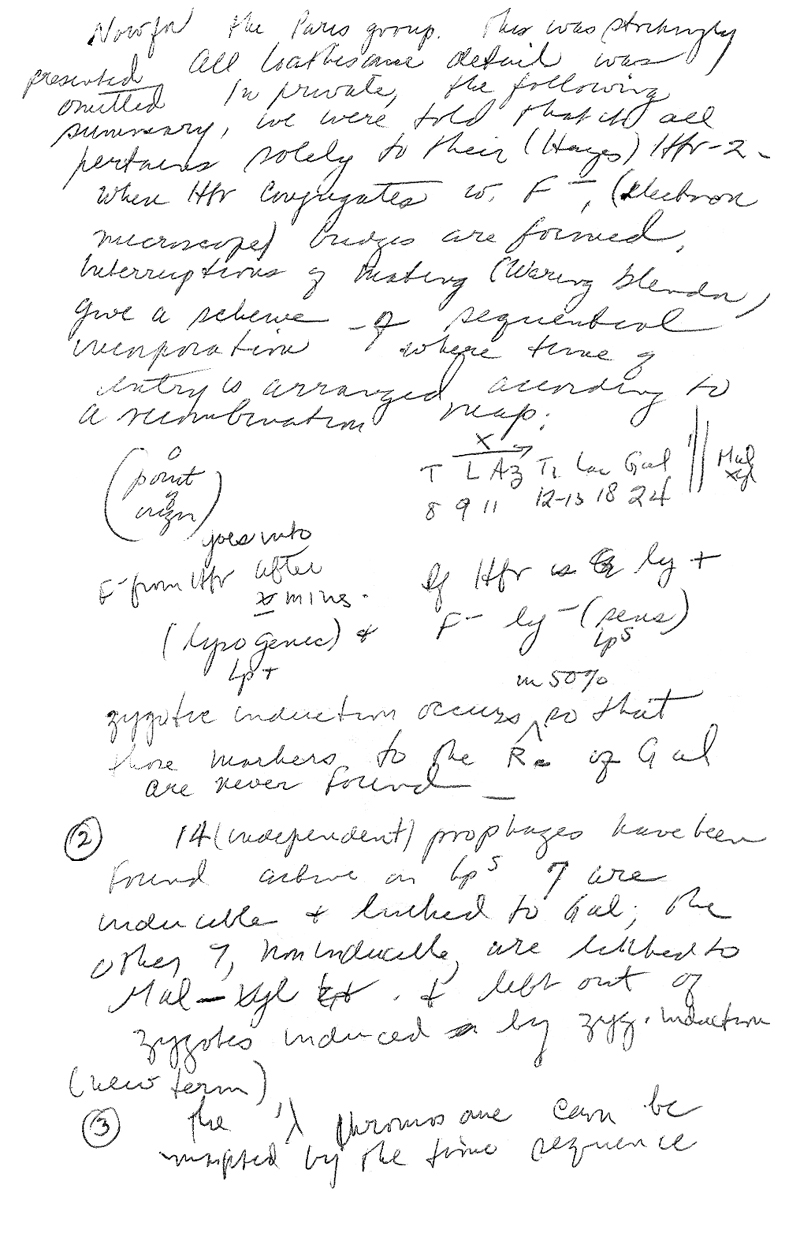 Now for the Paris group. This was strikingly
presented. All loathsome detail was
omitted In private, the following
summary, we were told that it all
pertains solely to their (Hayes) Hfr-2-
When Hfr conjugates w. F⁻, (electron
microscope) bridges are formed.
Interruptions of mating (Waring blendor)
give a scheme of sequential
incorporation where time of
entry is arranged according to
a recombination map:
(O point of origin)
X
T L Az T₁ Lac Gal ||| Mal Xyl
8 9 11 12-13 18 24
goes into
F⁻ from Hfr after
x mins.
If Hfr is ly +
(lysogenic) & F⁻ ly⁻ (sens)
Lp+ Lpˢ
in 50%
zygotic induction occurs so that
those markers to the R. of Gal
are never found —
② 14 (independent) prophages have been
found active on Lpˢ 7 are
inducible & linked to Gal; the
other 7, noninducible, are linked to
Mal — Xyl & left out of
zygotes induced by zyg. induction
(new term)
③ The λ chromosome can be
mapped by the time sequence